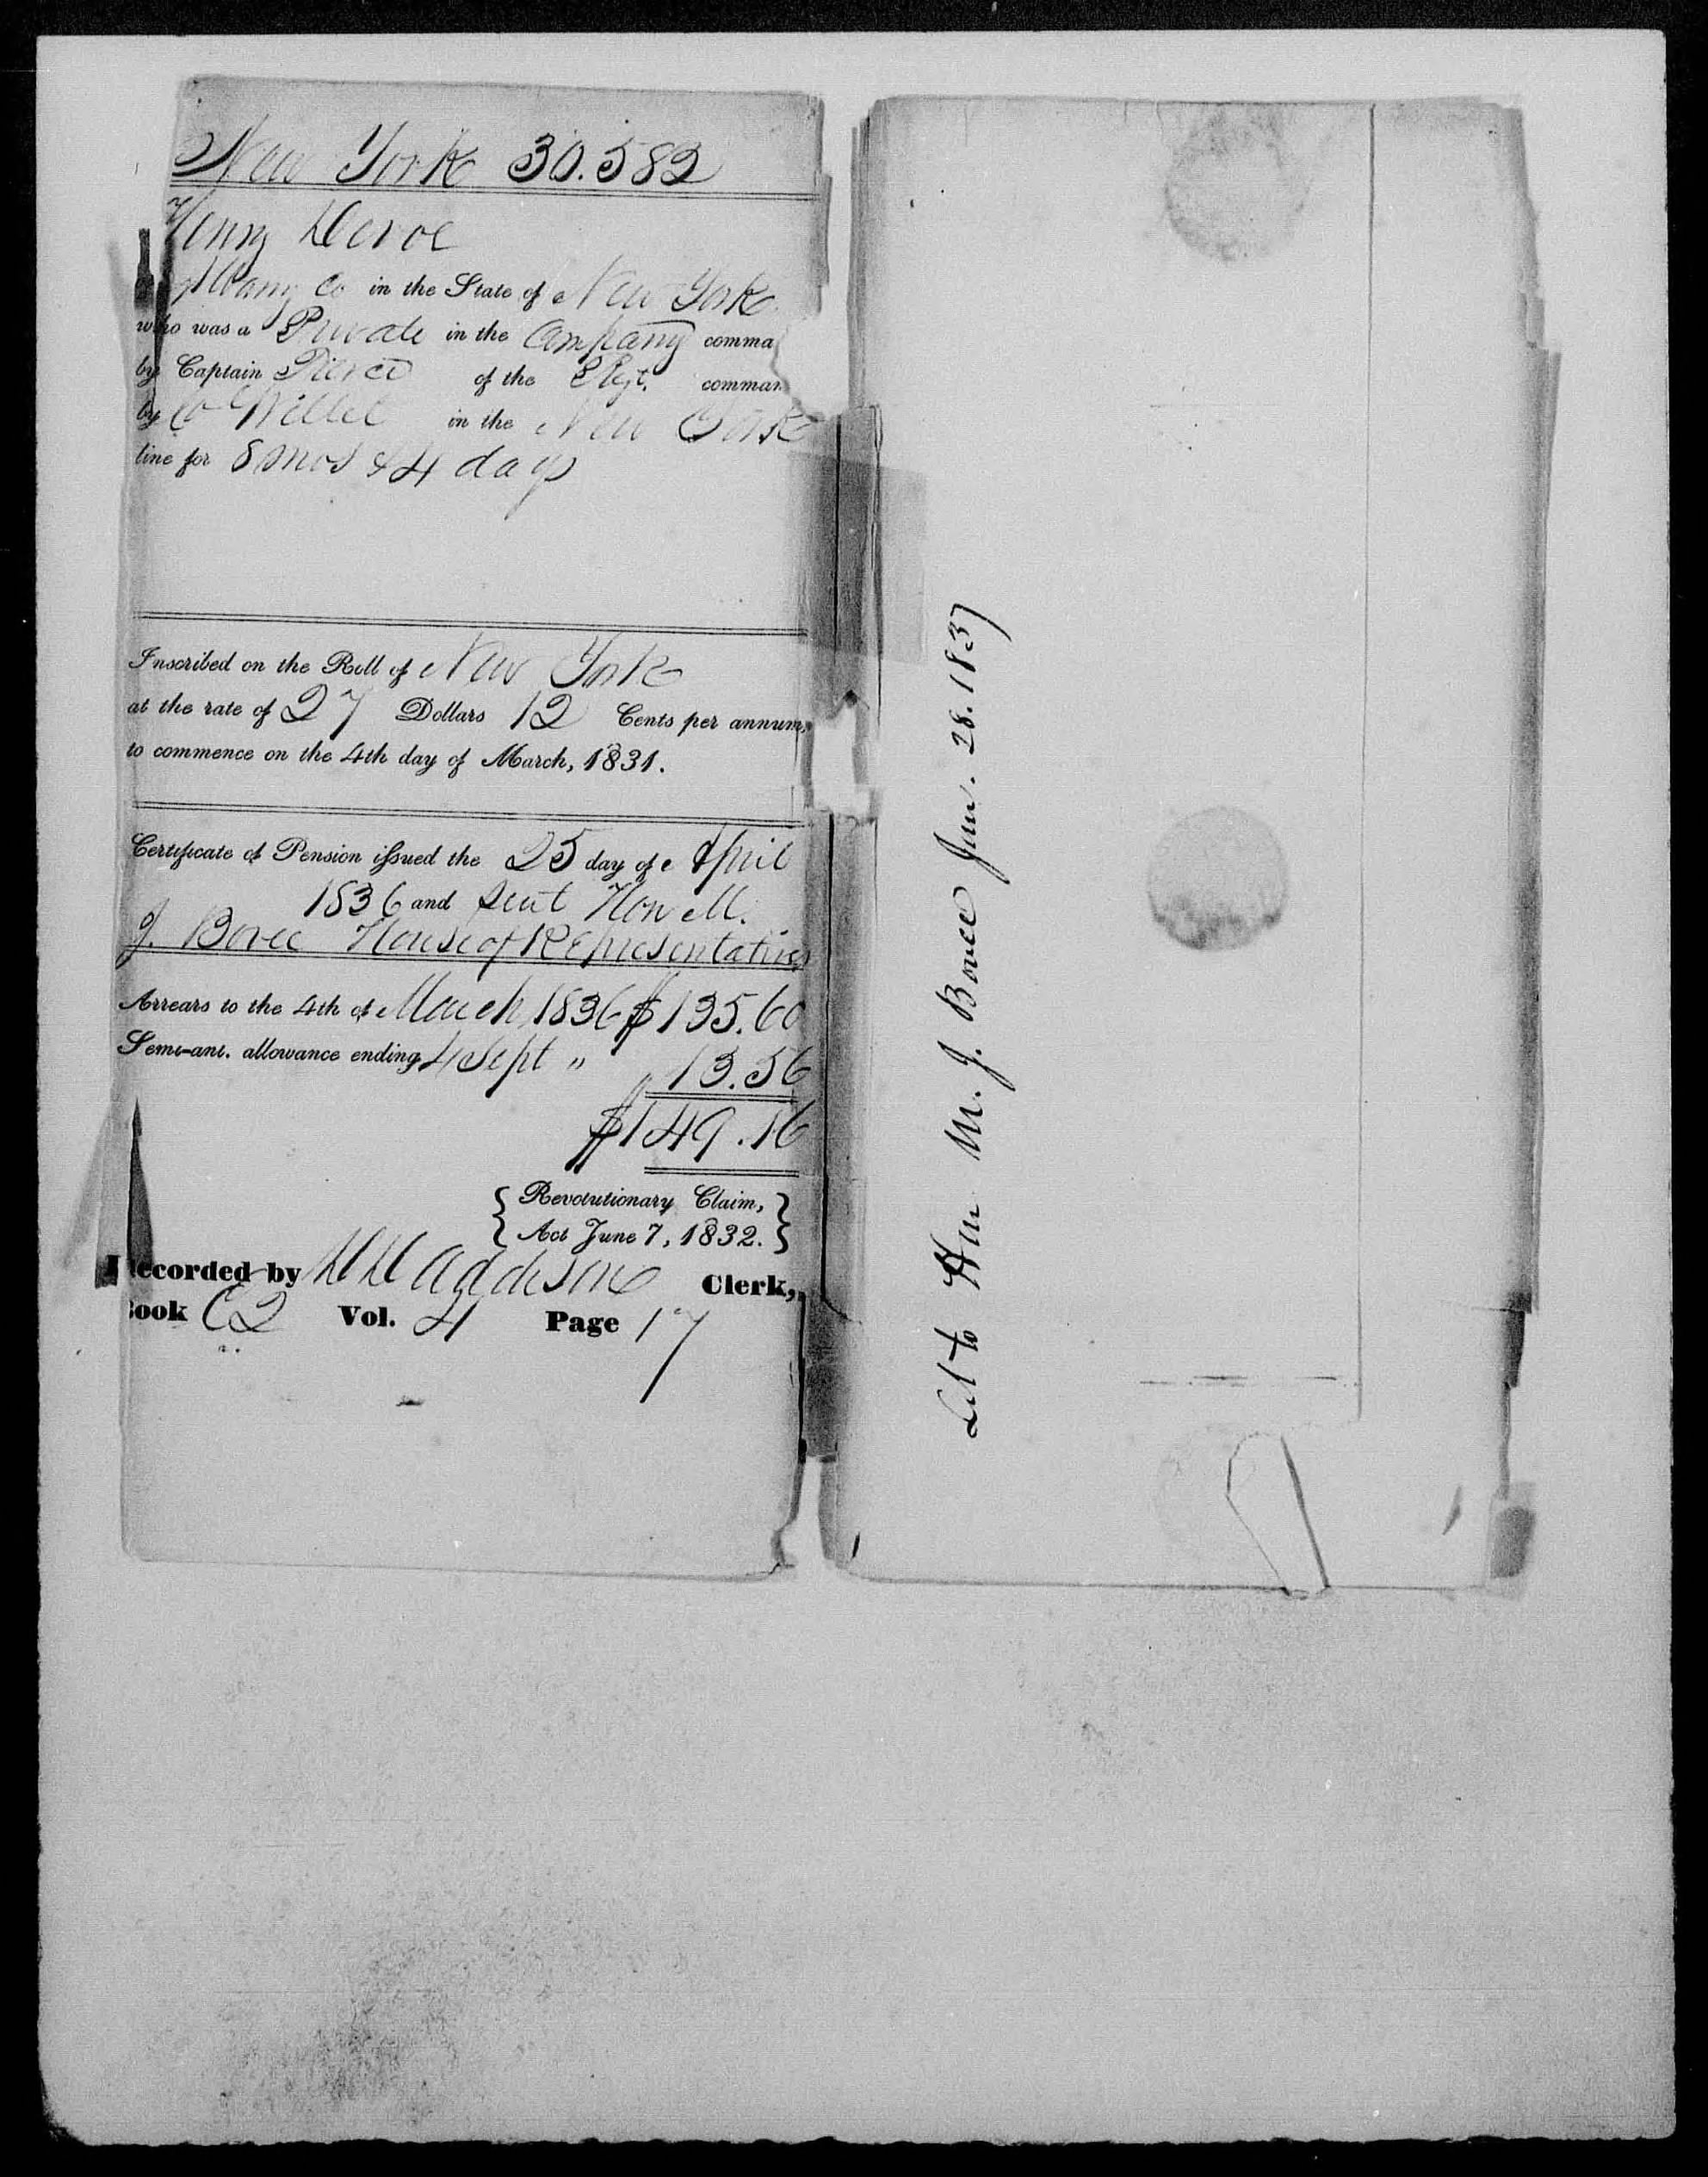 New York 30.582
Henry Devoe
Albany Co in the State of New York
who was a Private in the Company comma
by Captain Pierce of the Regt. comman
by Co Willet in the New York
line for 8 mos & 4 days
Inscribed on the Roll of New York
at the rate of 27 Dollars 12 Cents per annum,
to commence on the 4th day of March, 1831.
Certificate of Pension issued the 25 day of April
1836 and sent Hon M.
J. Bovee House of Representatives
Arrears to the 4th of March 1836 $135.60
Semi-anl. allowance ending 4 Sept " 13.56
$149.16
{ Revolutionary Claim, }
{ Act June 7, 1832. }
Recorded by Addison Clerk,
Book E2 Vol. 4 Page 17
Let to Hon M. J. Bovee Jan. 28. 1837